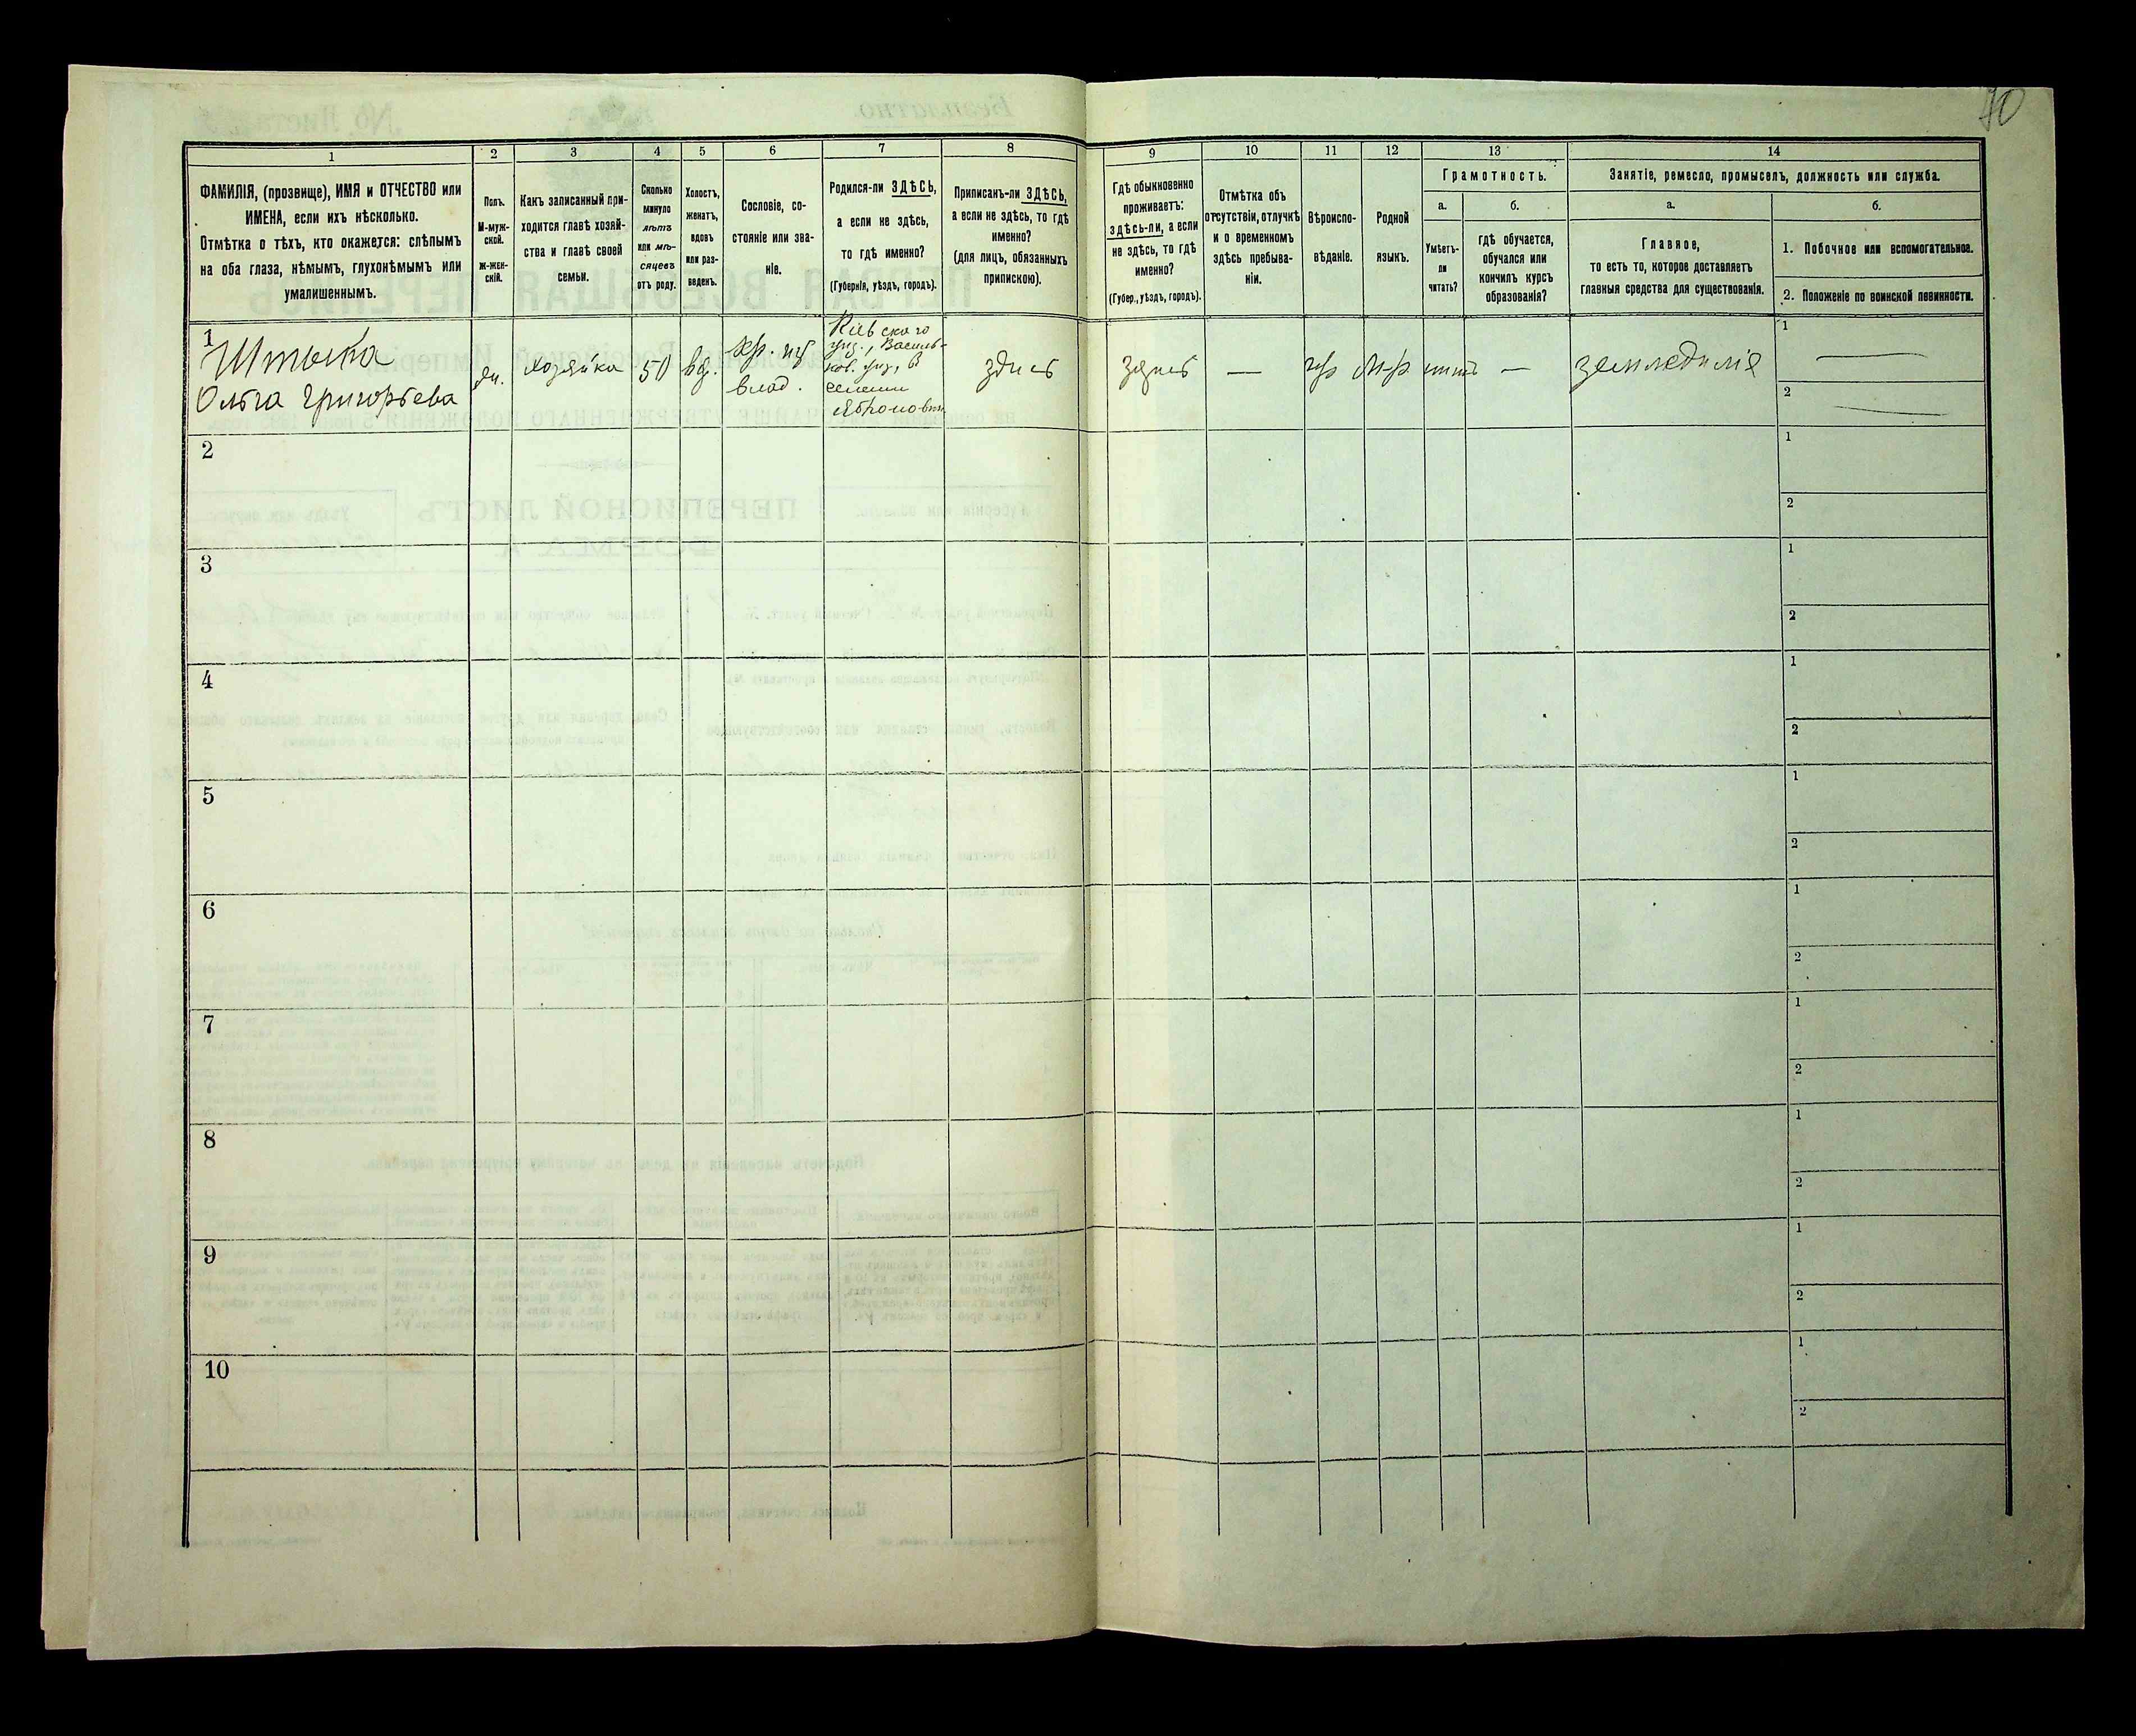 40
1
2
3
4
5
6
7
8
9
10
11
12
13
14
ФАМИЛІЯ, (прозвище), ИМЯ и ОТЧЕСТВО или
ИМЕНА, если ихъ нѣсколько.
Отмѣтка о тѣхъ, кто окажется: слѣпымъ
на оба глаза, нѣмымъ, глухонѣмымъ или
умалишеннымъ.
Полъ.
М-муж-
ской.
ж-жен-
скій.
Какъ записанный при-
ходится главѣ хозяй-
ства и главѣ своей
семьи.
Сколько
минуло
лѣтъ
или мѣ-
сяцевъ
отъ роду.
Холостъ,
женатъ,
вдовъ
или раз-
веденъ.
Сословіе, со-
стояніе или зва-
ніе.
Родился-ли ЗДѢСЬ,
а если не здѣсь,
то гдѣ именно?
(Губернія, уѣздъ, городъ).
Приписанъ-ли ЗДѢСЬ,
а если не здѣсь, то гдѣ
именно?
(для лицъ, обязанныхъ
припискою).
Гдѣ обыкновенно
проживаетъ:
здѣсь-ли, а если
не здѣсь, то гдѣ
именно?
(Губер., уѣздъ, городъ).
Отмѣтка объ
отсутствіи, отлучкѣ
и о временномъ
здѣсь пребыва-
ніи.
Вѣроиспо-
вѣданіе.
Родной
языкъ.
Грамотность.
а.
Умѣетъ-
ли
читать?
б.
гдѣ обучается,
обучался или
кончилъ курсъ
образованія?
Занятіе, ремесло, промыселъ, должность или служба.
а.
Главное,
то есть то, которое доставляетъ
главныя средства для существованія.
б.
1. Побочное или вспомогательное.
2. Положеніе по воинской повинности.
1
Штыка
Ольга Григорьева
хозяйка
50
вд.
кр. из
влад.
Кіевского
уѣз., Василь-
ков. уѣз, в
селении
здесь
здесь
—
—
земледиліе
1 —
2 —
2
1
2
3
1
2
4
1
2
5
1
2
6
1
2
7
1
2
8
1
2
9
1
2
10
1
2